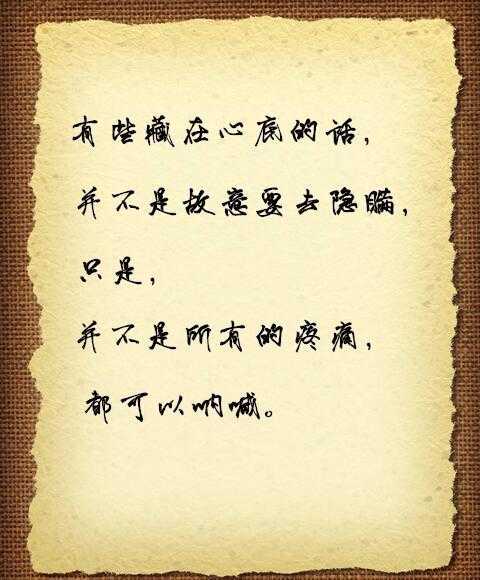 有些藏在心底的话，
并不是故意要去隐瞒，
只是，
并不是所有的疼痛，
都可以呐喊。